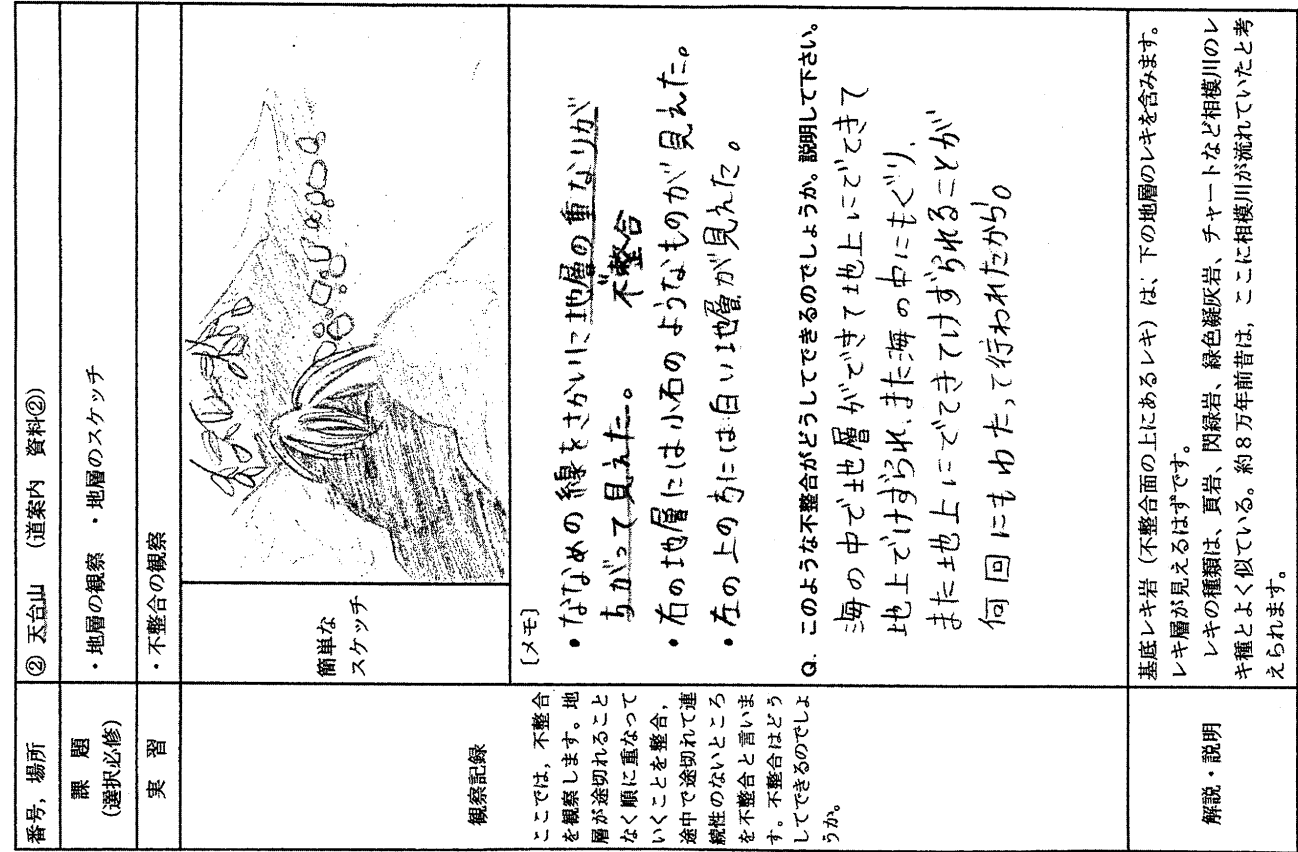 番号, 場所
② 天台山　（道案内　資料②）
課　題
（選択必修）
・地層の観察　・地層のスケッチ
実　習
・不整合の観察
観察記録
ここでは，不整合
を観察します。地
層が途切れること
なく順に重なって
いくことを整合，
途中で途切れて連
続性のないところ
を不整合と言いま
す。不整合はどう
してできるのでしょ
うか。
簡単な
スケッチ
〔メモ〕
・ななめの線をさかいに地層の重なりが
ちがって見えた。　不整合
・右の地層には小石のようなものが見えた。
・左の上の方には白い地層が見えた。
Q. このような不整合がどうしてできるのでしょうか。説明して下さい。
海の中で地層ができて地上にでてきて
地上でけずられ、また海の中にもぐり、
また地上にでてきてけずられることが
何回にもわたって行われたから。
解説・説明
基底レキ岩（不整合面の上にあるレキ）は、下の地層のレキを含みます。
レキ層が見えるはずです。
レキの種類は、頁岩、閃緑岩、緑色凝灰岩、チャートなど相模川のレ
キ種とよく似ている。約８万年前昔は，ここに相模川が流れていたと考
えられます。